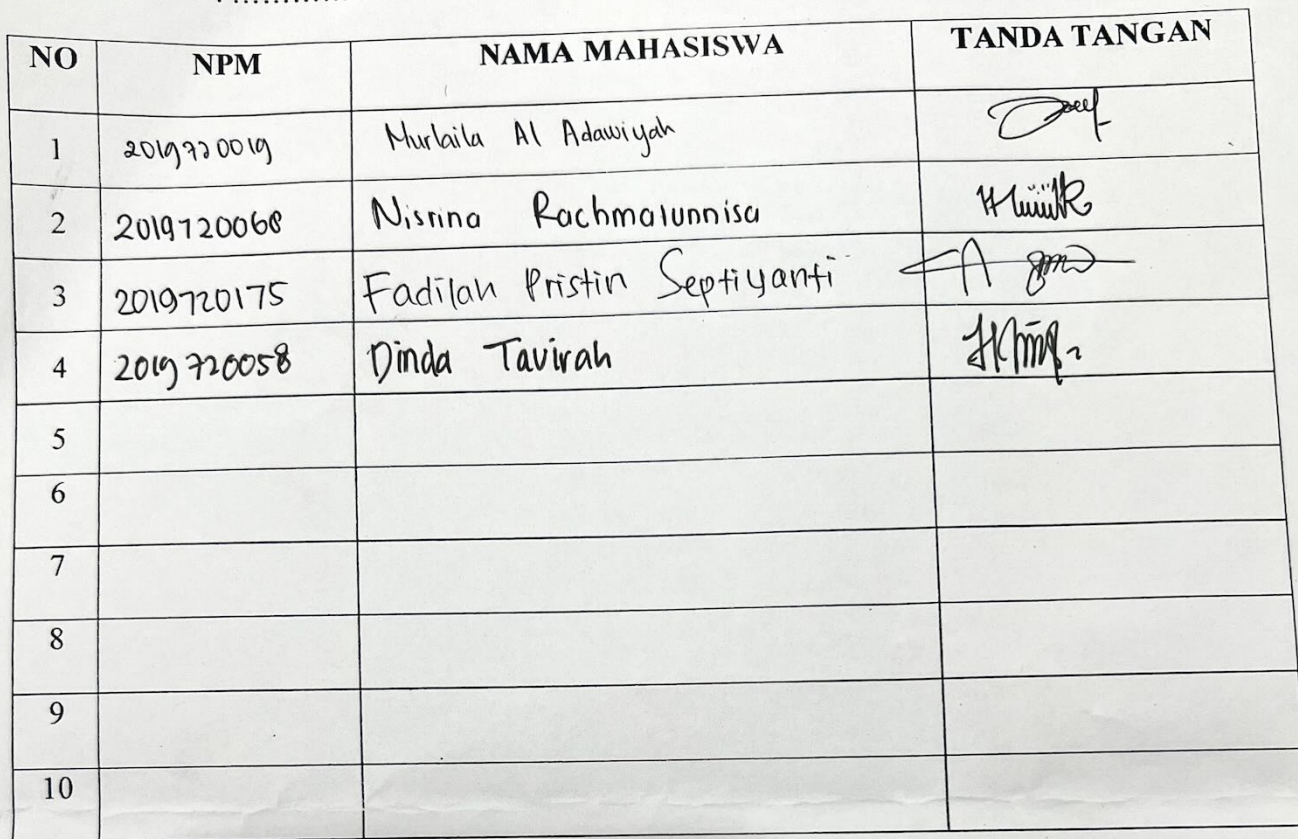 NO NPM NAMA MAHASISWA TANDA TANGAN
1 2019720019 Murlaila Al Adawiyah
2 2019720068 Nisrina Rachmatunnisa
3 2019720175 Fadilah Pristin Septiyanti
4 2019720058 Dinda Tavirah
5
6
7
8
9
10